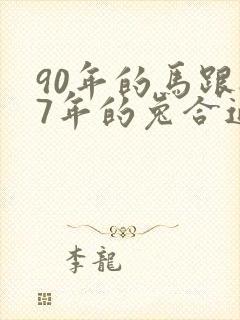 90年的馬跟
7年的兔合適
李龍